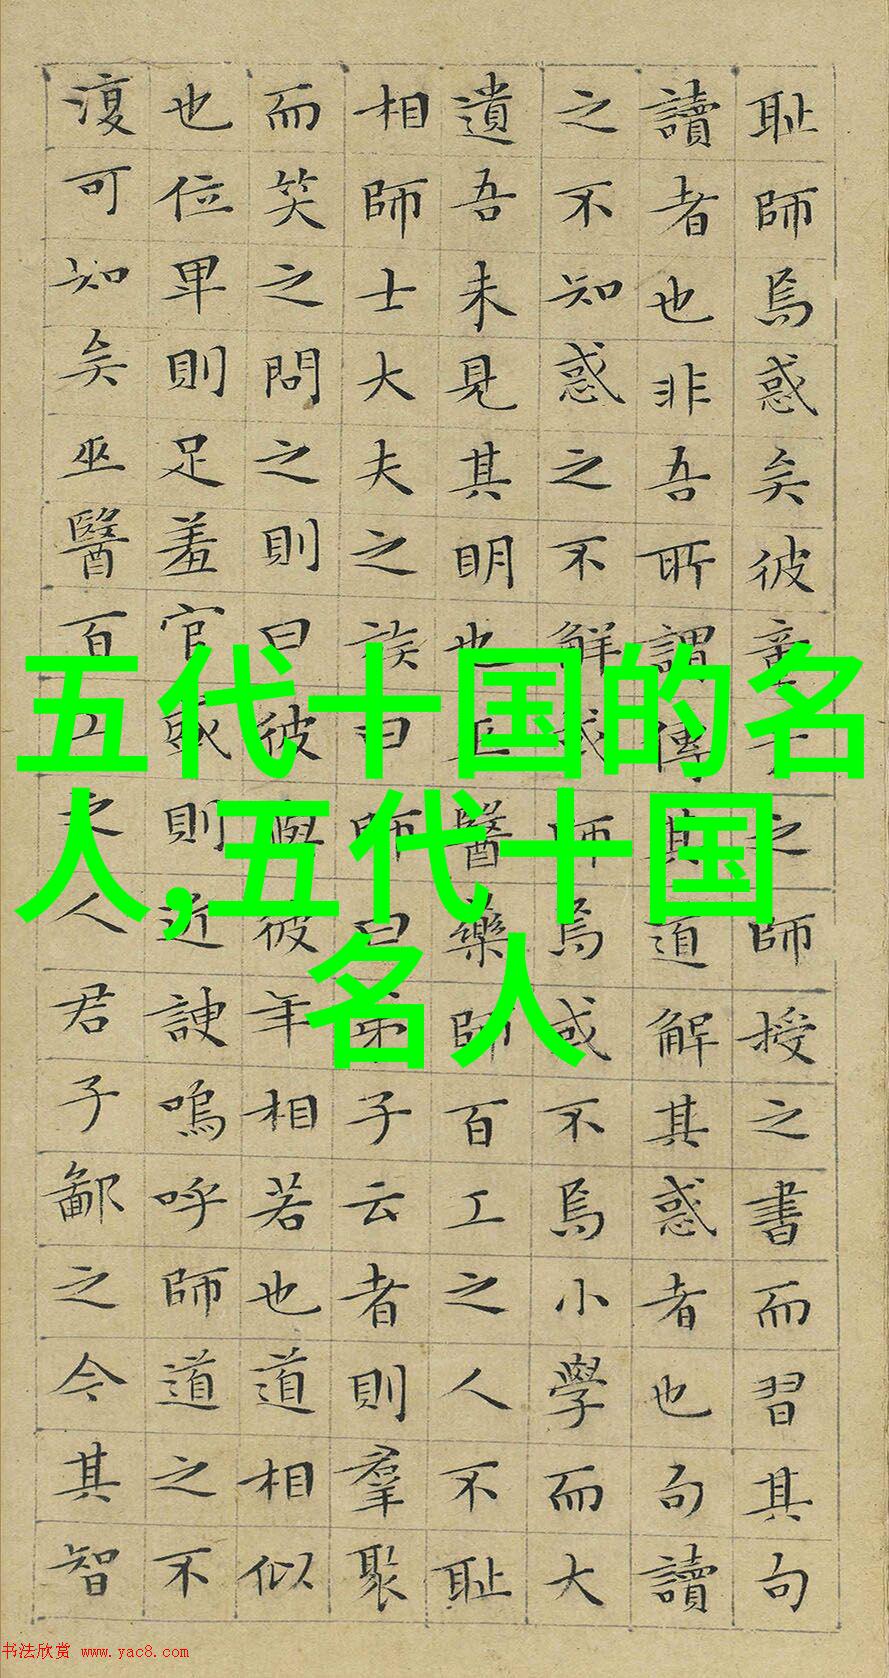 耻師焉惑矣彼童子之師授之書而習其句
讀者也非吾所謂傳其道解其惑者也句讀
之不知惑之不解或師焉或不焉小學而大
遺吾未見其明也巫醫藥師百工之人不耻
相師士大夫之族曰師曰弟子云者則羣聚
而笑之問之則曰彼與彼年相若也道相似
也位卑則足羞官盛則近諛嗚呼師道之不
復可知矣巫醫百工之人君子鄙之今其智
五代十国的名
人,五代十国
名人
书法欣赏 www.yac8.com